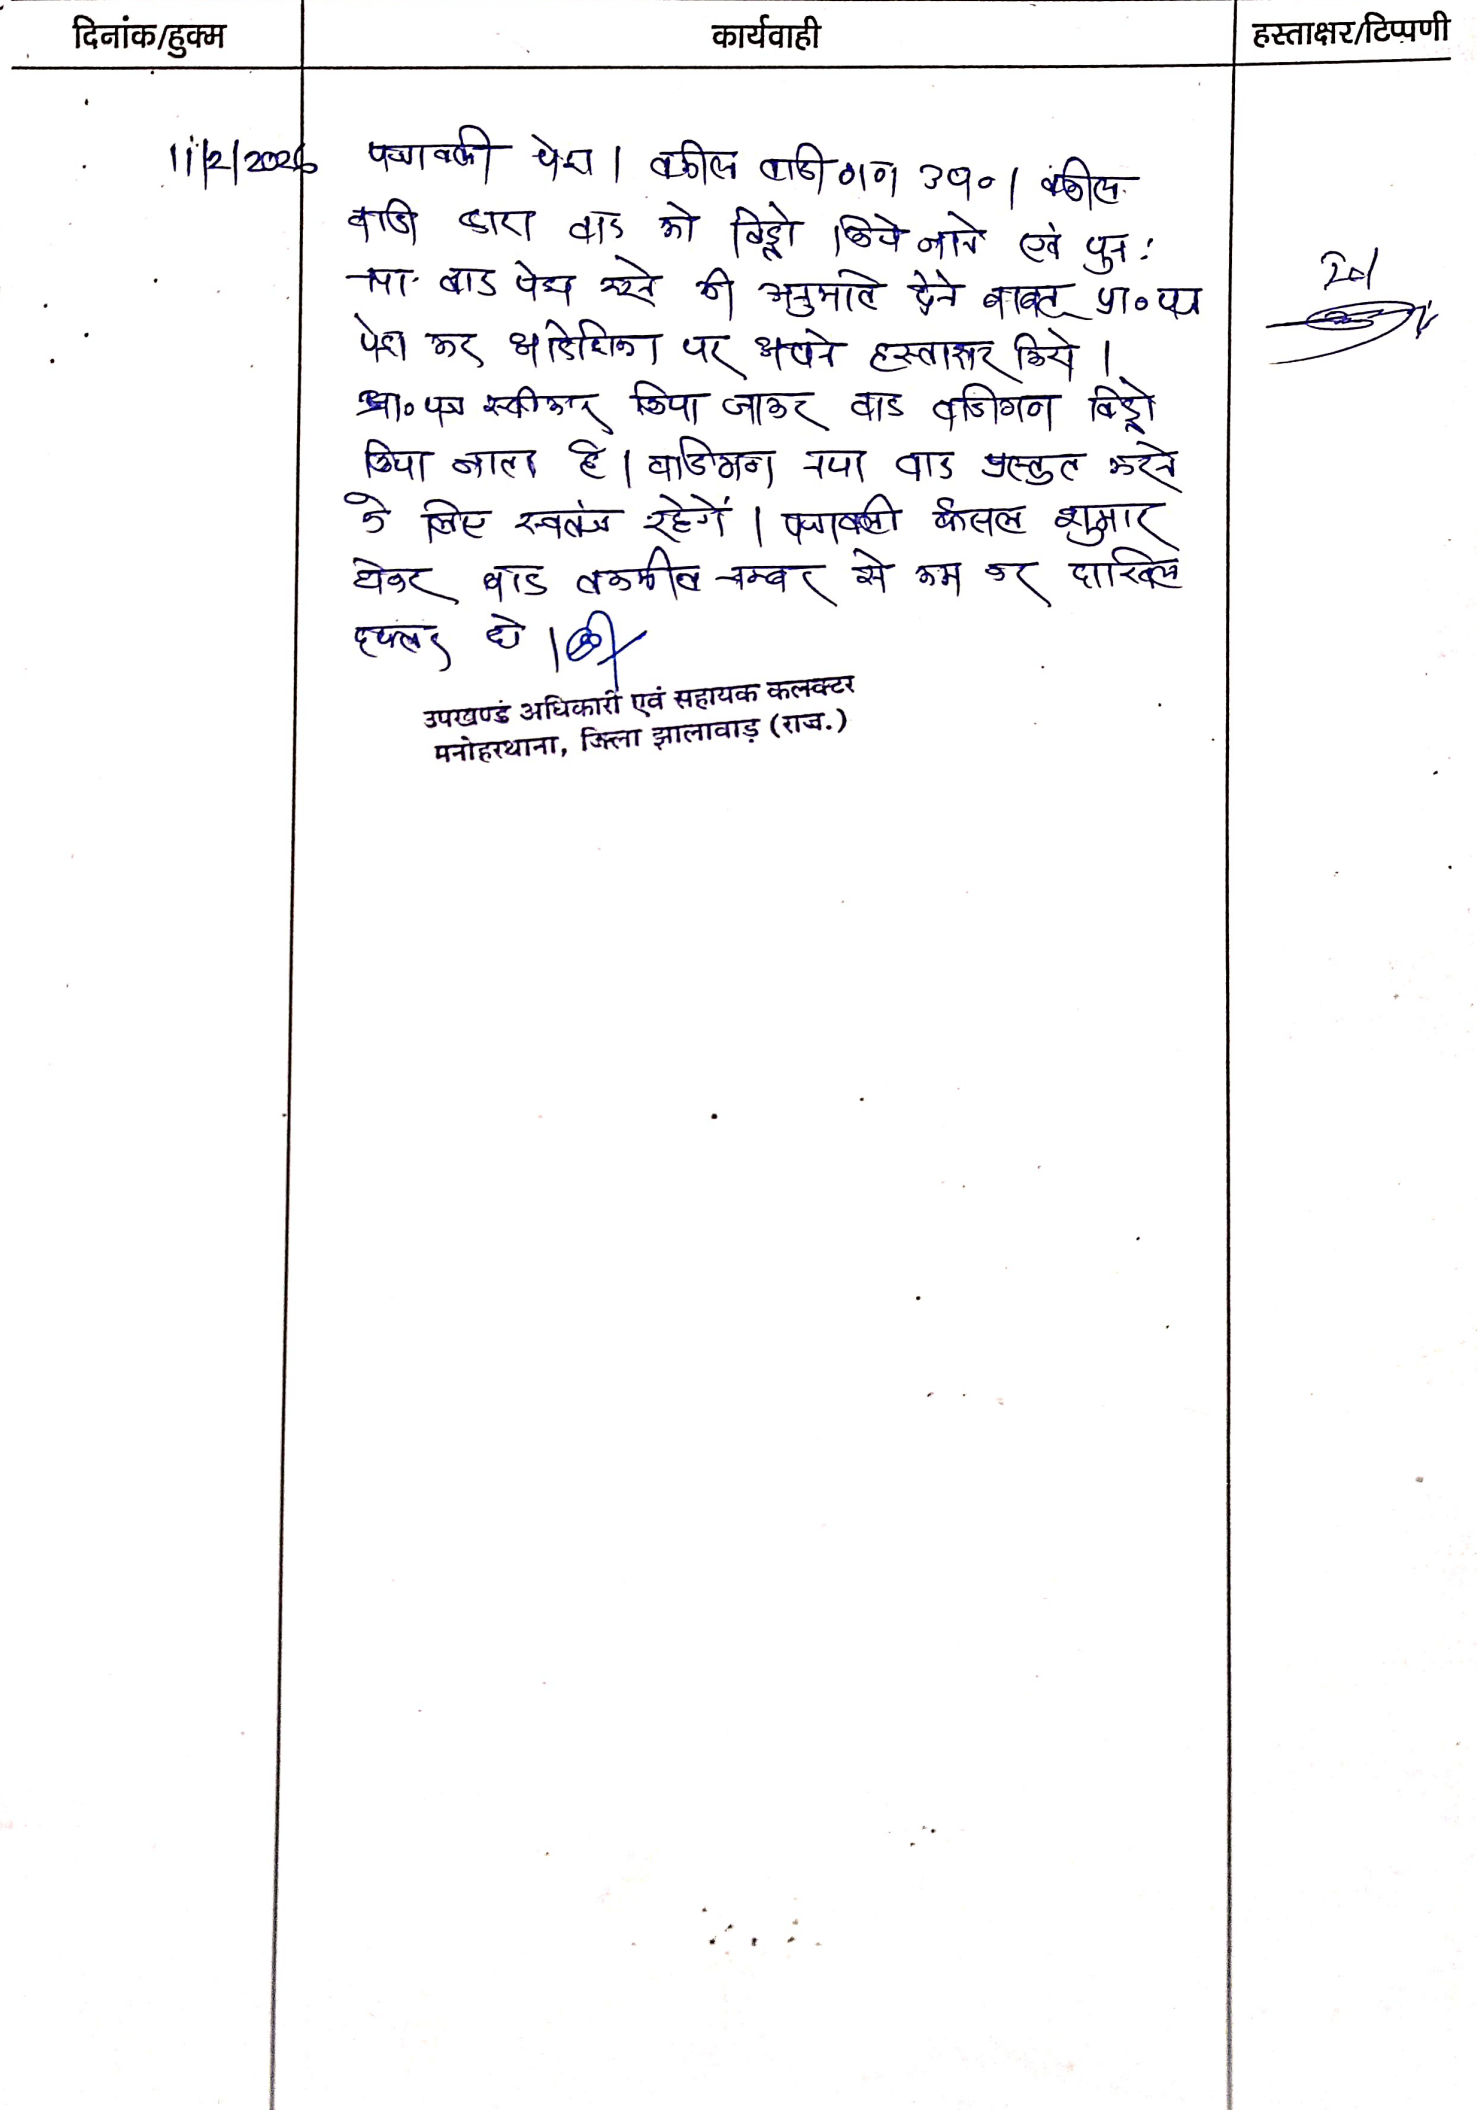 दिनांक/हुक्म कार्यवाही हस्ताक्षर/टिप्पणी
11/2/2026 पत्रावली पेश । वकील वादीगण उप० । वकील
वादि द्वारा वाद को विड्रो किये जाने एवं पुनः
नया वाद पेश करने की अनुमति देने बाबत् प्रा० पत्र
पेश कर आदेशिका पर अपने हस्ताक्षर किये ।
प्रा० पत्र स्वीकार किया जाकर वाद वादिगन विड्रो
किया जाता है । वादिगन नया वाद प्रस्तुत करने
के लिए स्वतंत्र रहेगें । पत्रावली फैसल शुमार
होकर वाद तकमील नम्बर से कम कर दाखिल
दफ्तर हो ।
उपखण्ड अधिकारी एवं सहायक कलक्टर
मनोहरथाना, जिला झालावाड़ (राज.)